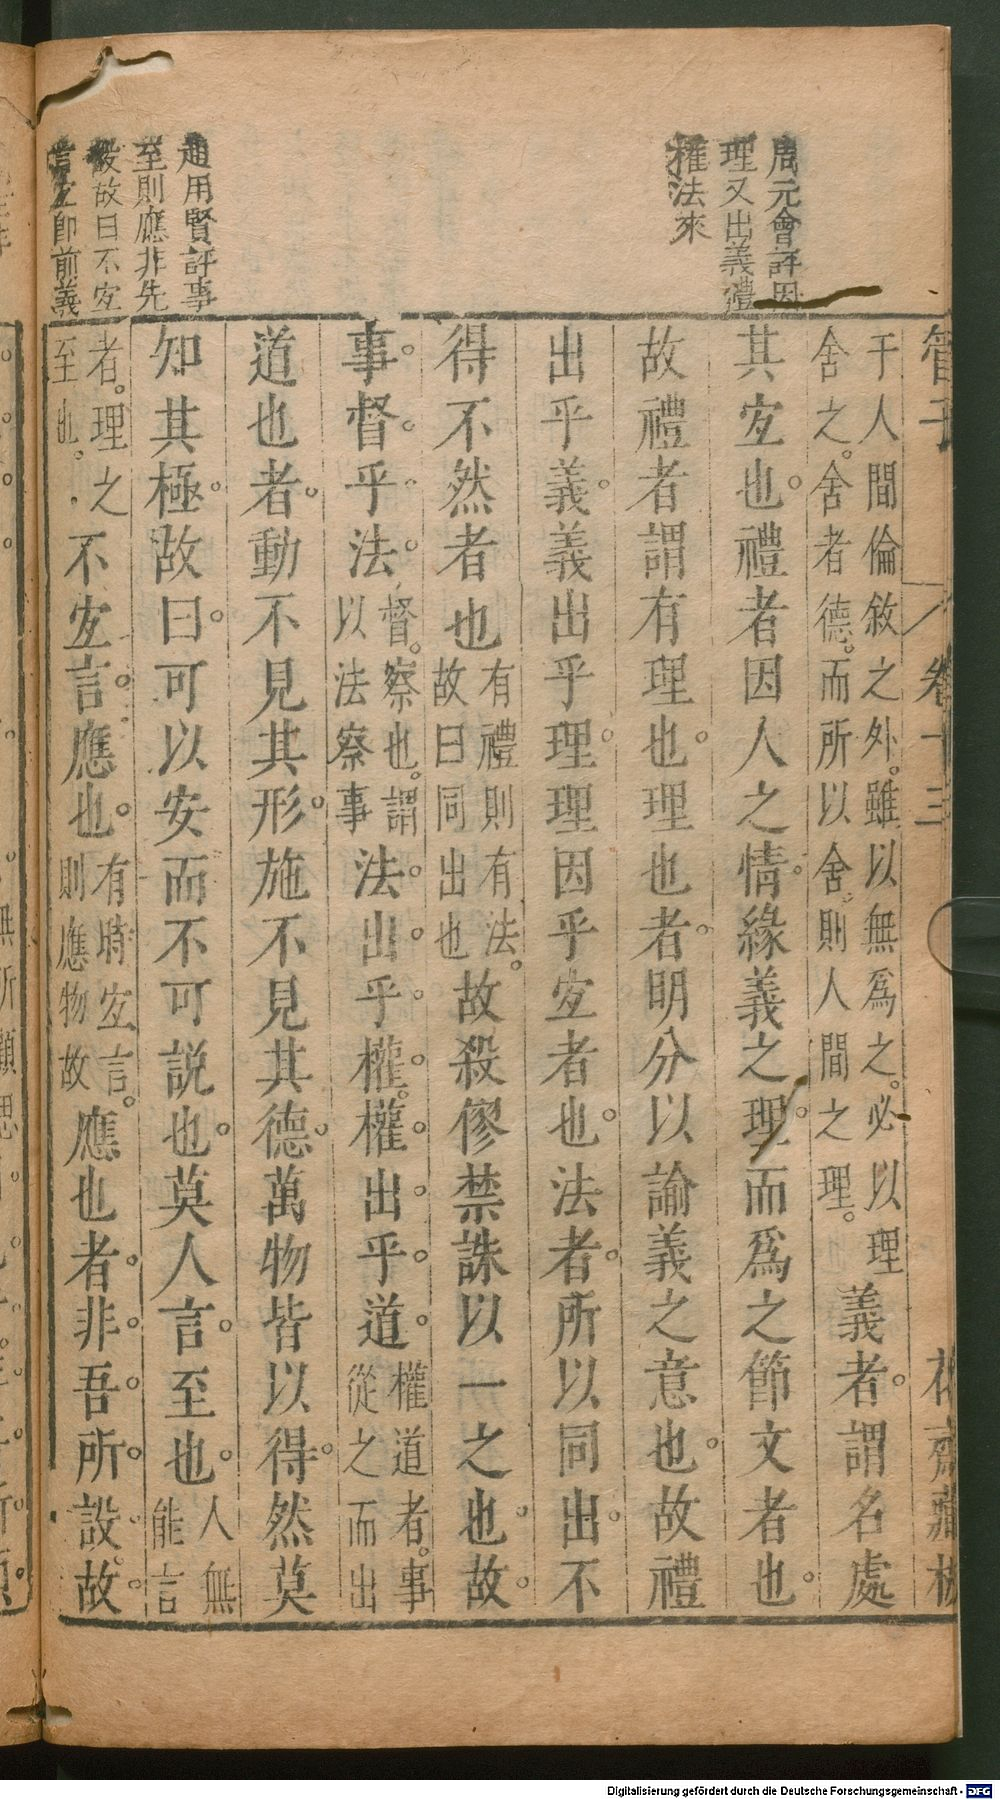 周元會評因
理又出義禮
權法來
趙用賢評事
至則應非先
設故曰不宐
言宐即前義
管子 卷十三
于人間倫敘之外。雖以無爲之。必以理
舍之。舍者德。而所以舍。則人間之理。
義者。謂名處
其宐也。禮者因人之情。緣義之理。而爲之節文者也。
故禮者謂有理也。理也者。明分以諭義之意也。故禮
出乎義。義出乎理。理因乎宐者也。法者。所以同出。不
得不然者也
有禮則有法。
故曰同出也
故殺僇禁誅以一之也。故。
事。督。乎。法。
督。察也。謂
以法察事
法。出。乎。權。權。出。乎。道。
權道者。事
從之而出
道也者。動不見其形。施不見其德。萬物皆以得。然莫
知其極。故曰。可以安而不可説也。莫人言。至也。
人無
能言
者。理之
至也。
不宐言。應也。
有時宐言。
則應物故
應也者。非。吾。所。設。故。